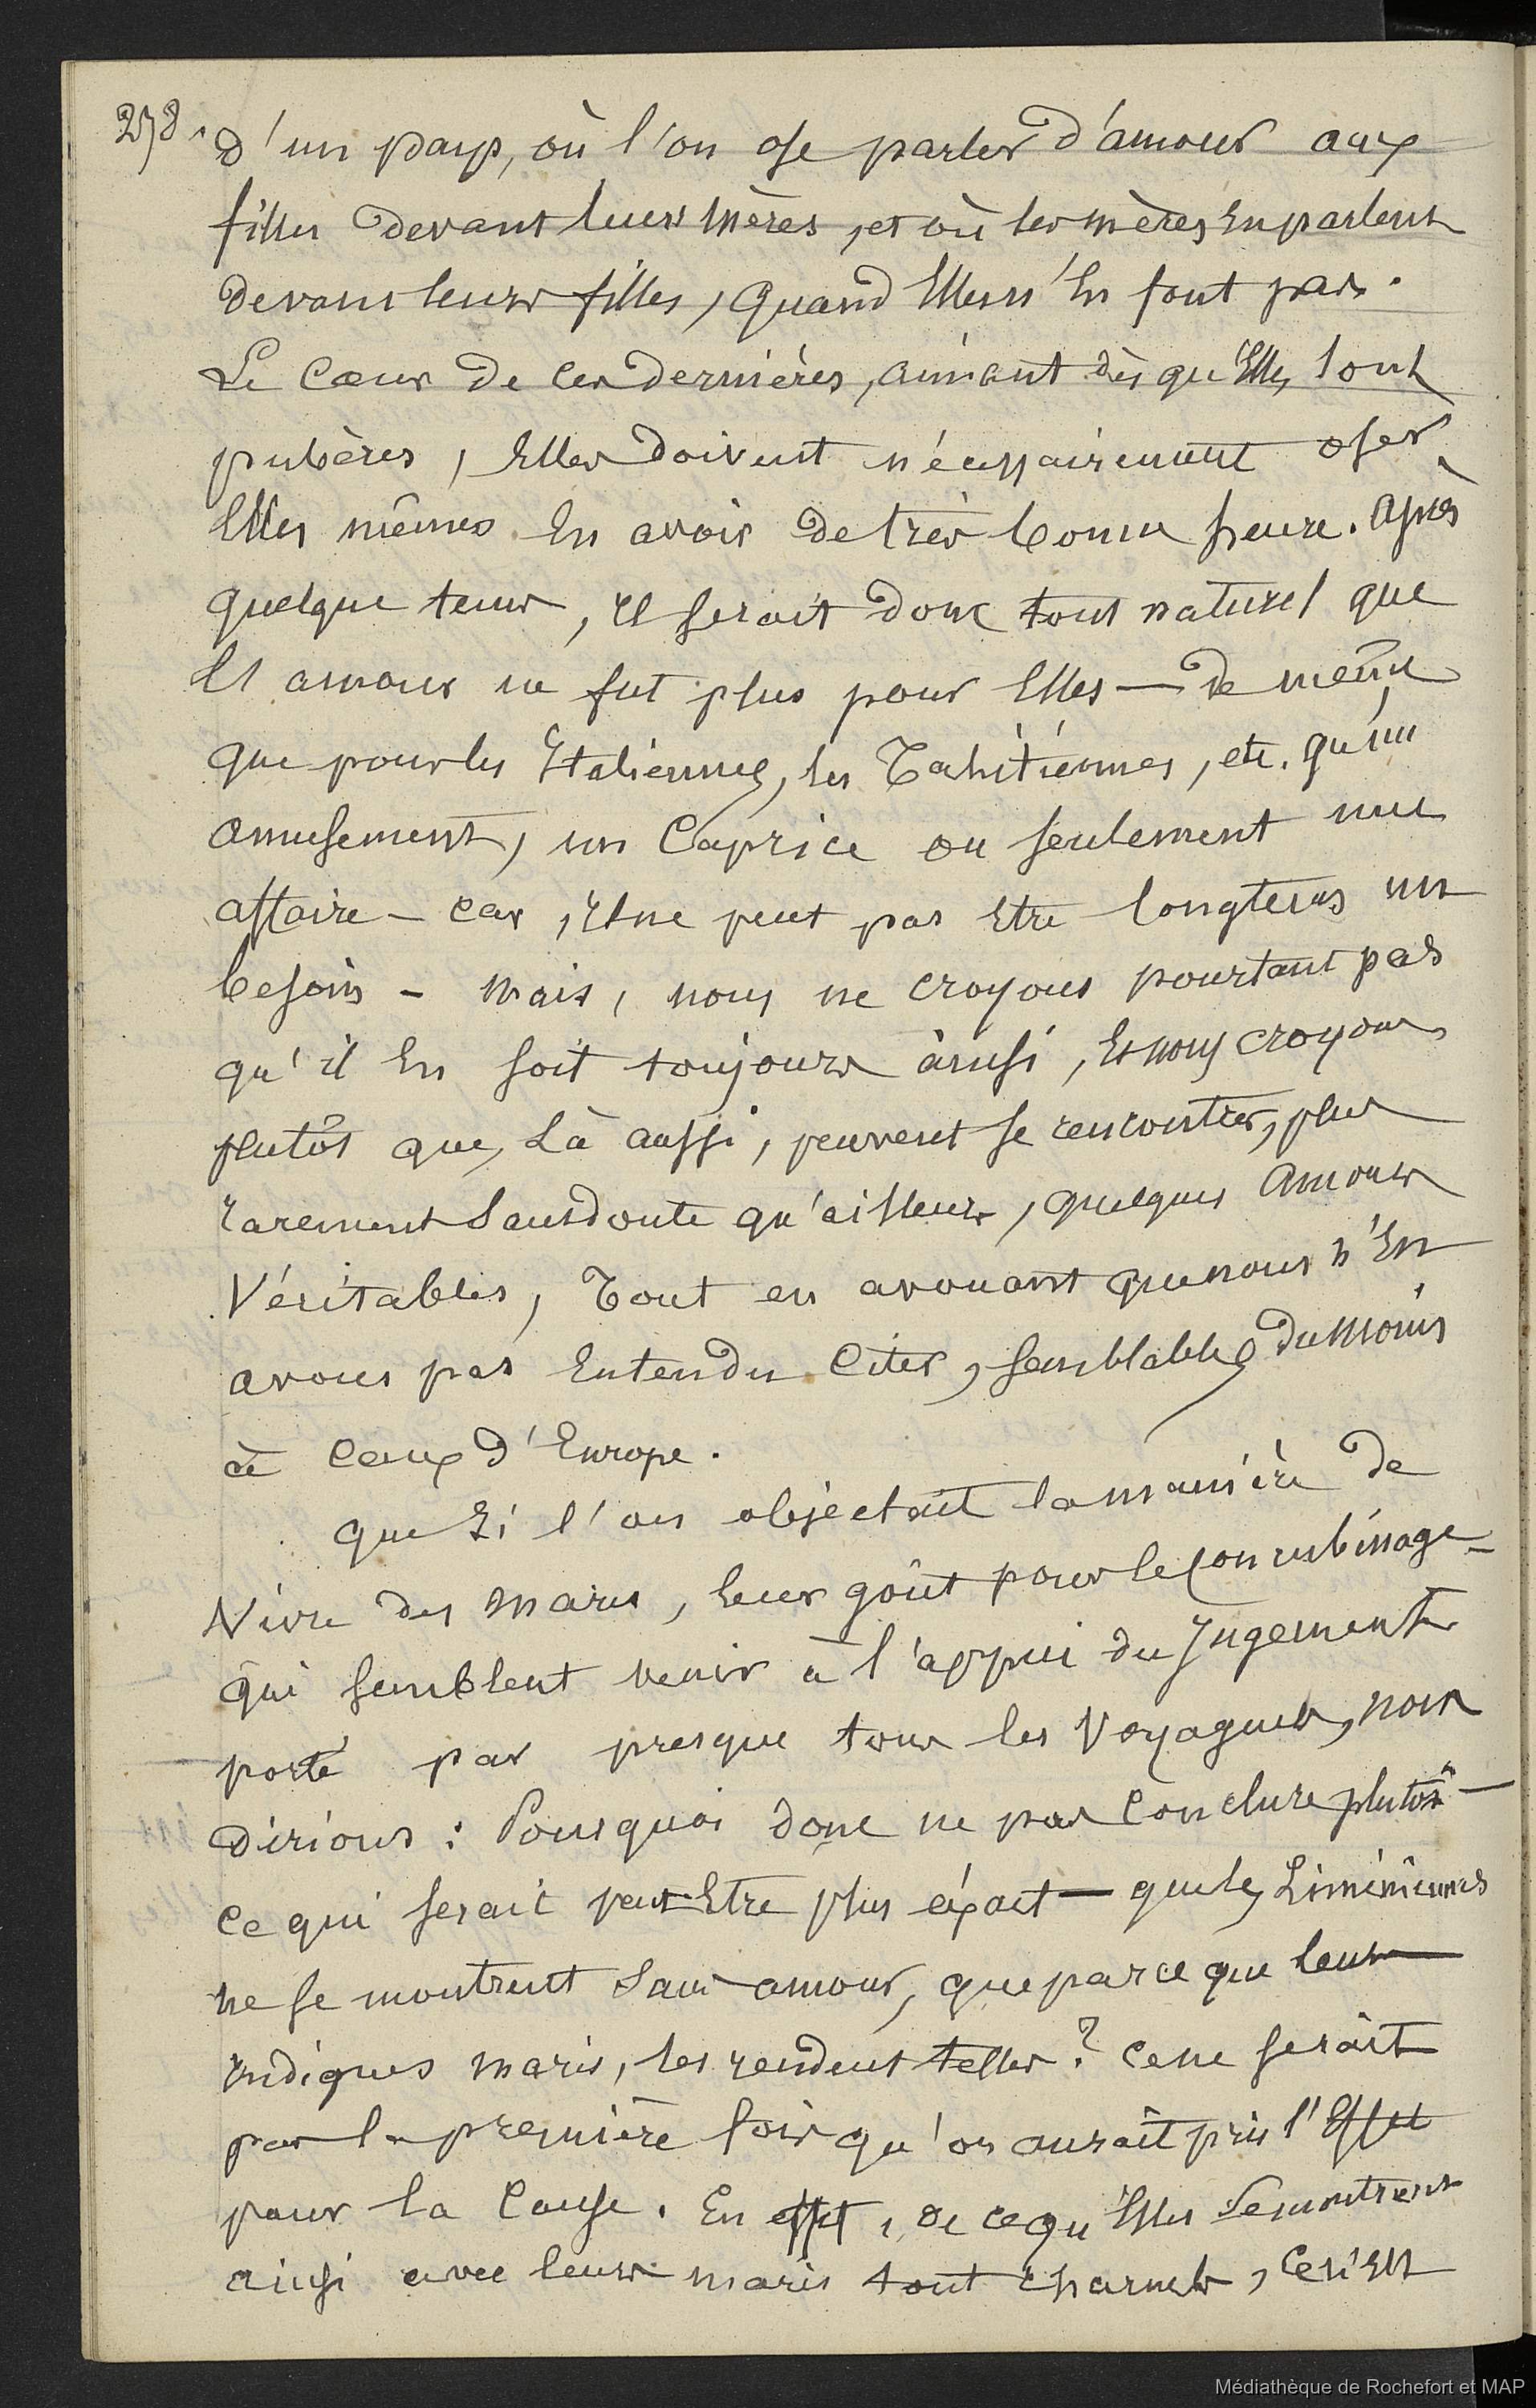 278.
d'un pays, où l'on ose parler d'amour aux
filles devant leurs mères, et où les mères en parlent
devant leurs filles, quand elles n'en font pas.
Le cœur de ces dernières, aimant dès qu'elles sont
pubères, elles doivent nécessairement oser
elles mêmes en avoir de très bonne heure. Après
quelque tems, il serait donc tout naturel que
cet amour ne fut plus pour elles — de même
que pour les Italiennes, les Tahitiennes, etc. qu'un
amusement, un caprice ou seulement une
affaire — car, il ne peut pas être longtems un
besoin — mais, nous ne croyons pourtant pas
qu'il en soit toujours ainsi, et nous croyons
plutôt que, là aussi, peuvent se rencontrer, plus
rarement sans doute qu'ailleurs, quelques amours
véritables, tout en avouant que nous n'en
avons pas entendu citer, semblables du moins
à ceux d'Europe.
que si l'on objectait la manière de
vivre des maris, leur goût pour le concubinage —
qui semblent venir à l'appui du jugement
porté par presque tous les voyageurs, nous
dirions : Pourquoi donc ne pas conclure plutôt —
ce qui serait peut être plus éxact — que les Liméniennes
ne se montrent sans amour, que parce que leurs
indignes maris, les rendent telles ? Ce ne serait
pas la première fois qu'on aurait pris l'effet
pour la cause. En effet, de ce qu'elles se montrent
ainsi avec leurs maris tout charnels, ce n'est
Médiathèque de Rochefort et MAP